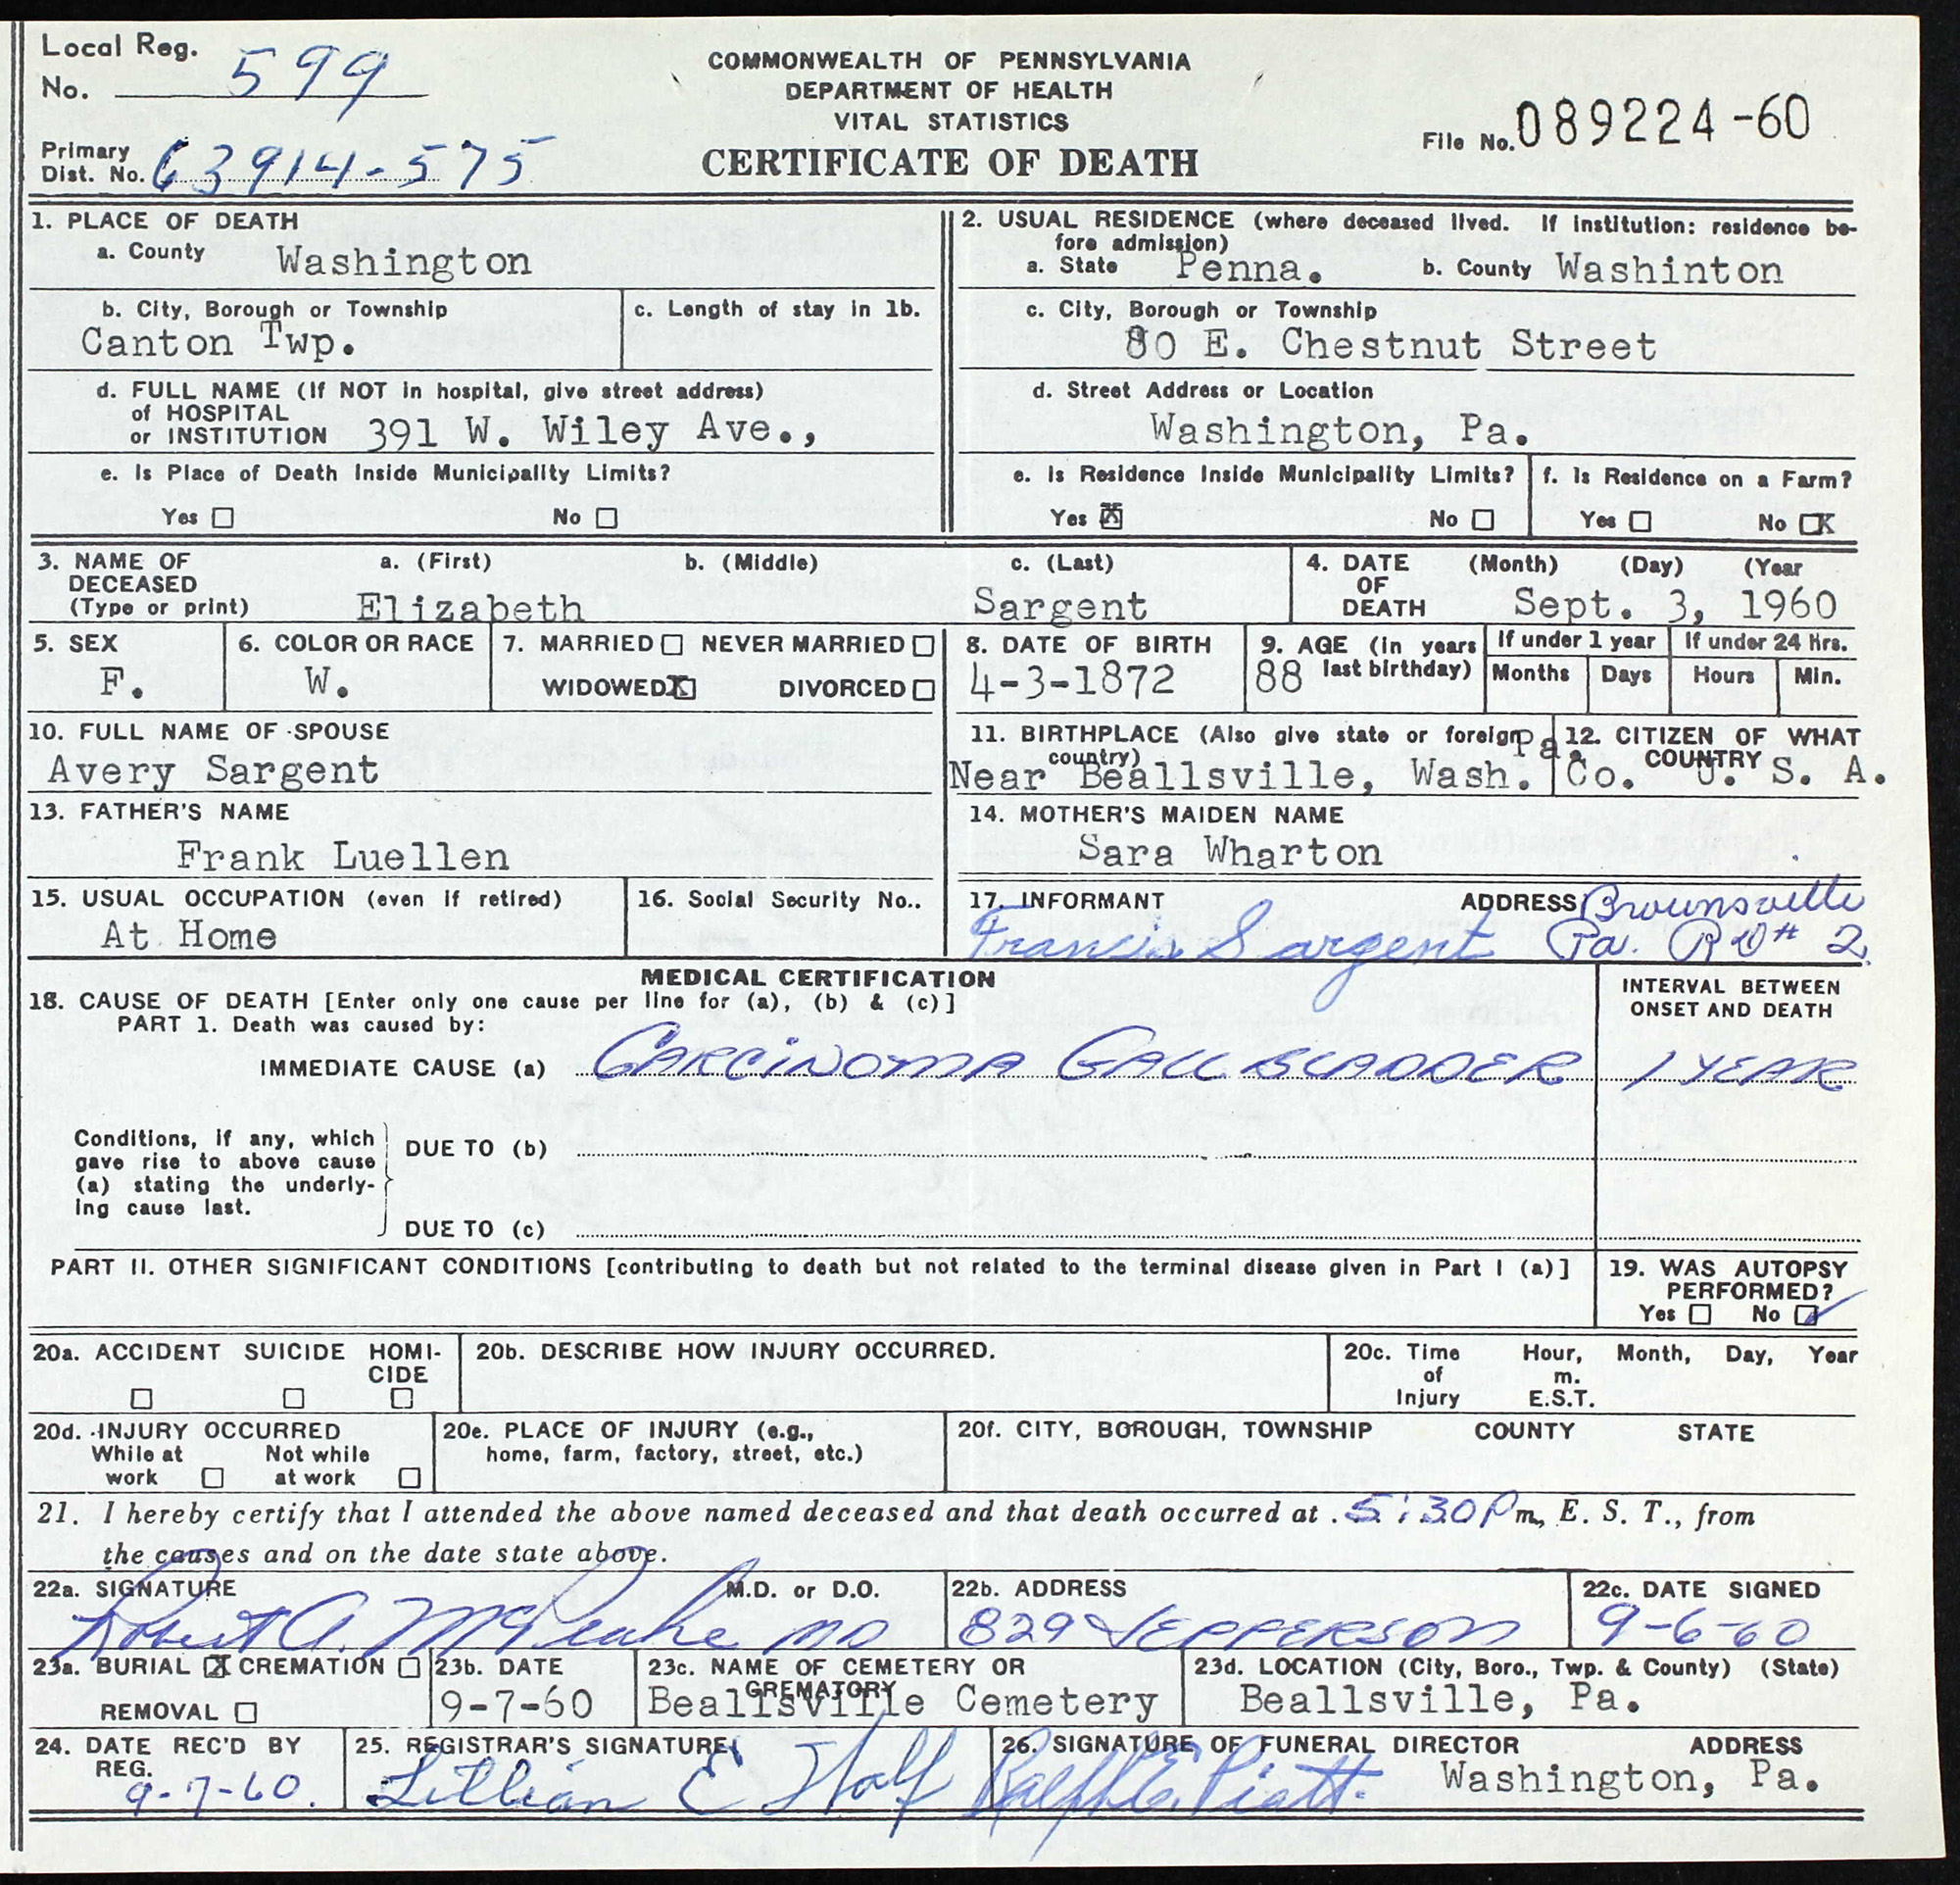 Local Reg.
No. 599
COMMONWEALTH OF PENNSYLVANIA
DEPARTMENT OF HEALTH
VITAL STATISTICS
CERTIFICATE OF DEATH
File No. 089224-60
Primary
Dist. No. 63914-575
1. PLACE OF DEATH
a. County Washington
b. City, Borough or Township
Canton Twp.
c. Length of stay in 1b.
d. FULL NAME (If NOT in hospital, give street address)
of HOSPITAL
or INSTITUTION 391 W. Wiley Ave.,
e. Is Place of Death Inside Municipality Limits?
Yes ☐ No ☐
2. USUAL RESIDENCE (where deceased lived. If institution: residence be-
fore admission)
a. State Penna. b. County Washinton
c. City, Borough or Township
80 E. Chestnut Street
d. Street Address or Location
Washington, Pa.
e. Is Residence Inside Municipality Limits?
Yes ☒ No ☐
f. Is Residence on a Farm?
Yes ☐ No ☒
3. NAME OF
DECEASED
(Type or print)
a. (First) b. (Middle) c. (Last)
Elizabeth Sargent
4. DATE
OF
DEATH
(Month) (Day) (Year
Sept. 3, 1960
5. SEX
F.
6. COLOR OR RACE
W.
7. MARRIED ☐ NEVER MARRIED ☐
WIDOWED ☒ DIVORCED ☐
8. DATE OF BIRTH
4-3-1872
9. AGE (in years
last birthday)
88
If under 1 year
Months Days
If under 24 hrs.
Hours Min.
10. FULL NAME OF SPOUSE
Avery Sargent
11. BIRTHPLACE (Also give state or foreign
country)
Near Beallsville, Wash. Co. Pa.
12. CITIZEN OF WHAT
COUNTRY
U. S. A.
13. FATHER'S NAME
Frank Luellen
14. MOTHER'S MAIDEN NAME
Sara Wharton
15. USUAL OCCUPATION (even if retired)
At Home
16. Social Security No..
17. INFORMANT ADDRESS
Francis Sargent Brownsville
Pa. RD# 2
MEDICAL CERTIFICATION
18. CAUSE OF DEATH [Enter only one cause per line for (a), (b) & (c)]
PART 1. Death was caused by:
INTERVAL BETWEEN
ONSET AND DEATH
IMMEDIATE CAUSE (a) CARCINOMA GALL BLADDER 1 YEAR
Conditions, if any, which
gave rise to above cause
(a) stating the underly-
ing cause last.
DUE TO (b)
DUE TO (c)
PART II. OTHER SIGNIFICANT CONDITIONS [contributing to death but not related to the terminal disease given in Part I (a)]
19. WAS AUTOPSY
PERFORMED?
Yes ☐ No ☑
20a. ACCIDENT SUICIDE HOMI-
CIDE
☐ ☐ ☐
20b. DESCRIBE HOW INJURY OCCURRED.
20c. Time
of
Injury
Hour, Month, Day, Year
m.
E.S.T.
20d. INJURY OCCURRED
While at
work ☐
Not while
at work ☐
20e. PLACE OF INJURY (e.g.,
home, farm, factory, street, etc.)
20f. CITY, BOROUGH, TOWNSHIP COUNTY STATE
21. I hereby certify that I attended the above named deceased and that death occurred at 5:30 P m., E. S. T., from
the causes and on the date state above.
22a. SIGNATURE M.D. or D.O.
Robert A. MD
22b. ADDRESS
829 JEFFERSON
22c. DATE SIGNED
9-6-60
23a. BURIAL ☒ CREMATION ☐
REMOVAL ☐
23b. DATE
9-7-60
23c. NAME OF CEMETERY OR
CREMATORY
Beallsville Cemetery
23d. LOCATION (City, Boro., Twp. & County) (State)
Beallsville, Pa.
24. DATE REC'D BY
REG.
9-7-60.
25. REGISTRAR'S SIGNATURE
Lillian E
26. SIGNATURE OF FUNERAL DIRECTOR ADDRESS
Ralph E. Piatt. Washington, Pa.